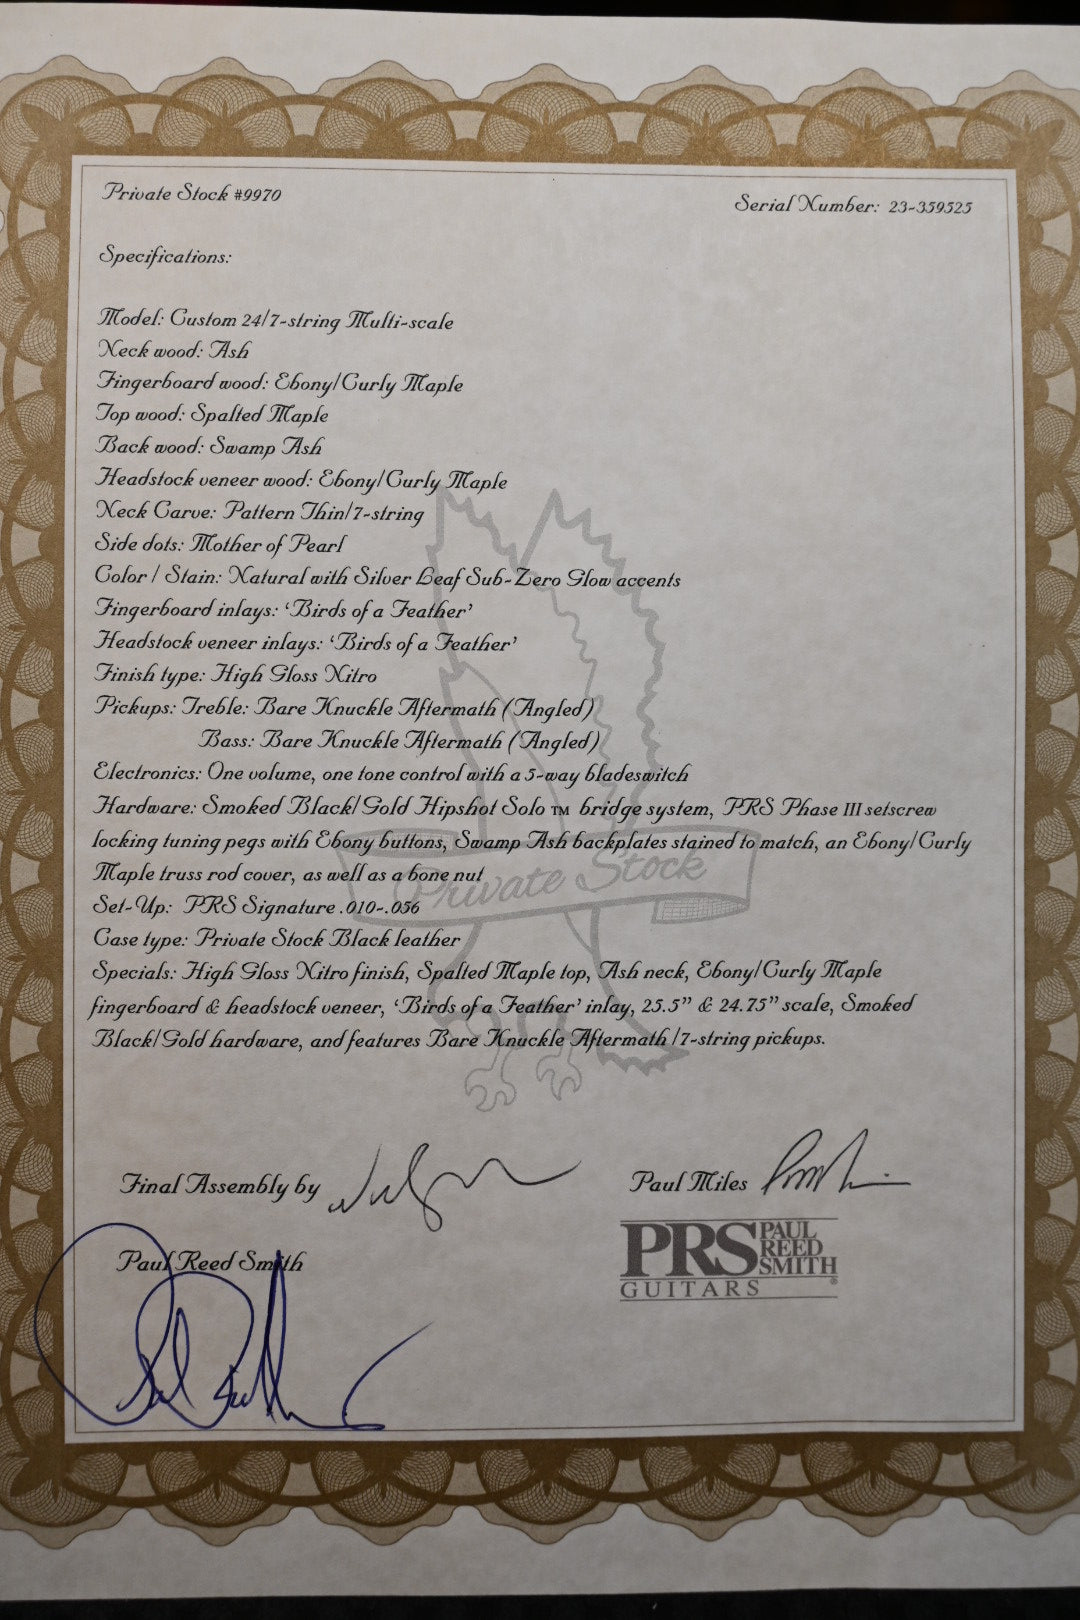 Private Stock #9970
Serial Number: 23-359525
Specifications:
Model: Custom 24/7-string Multi-scale
Neck wood: Ash
Fingerboard wood: Ebony/Curly Maple
Top wood: Spalted Maple
Back wood: Swamp Ash
Headstock veneer wood: Ebony/Curly Maple
Neck Carve: Pattern Thin/7-string
Side dots: Mother of Pearl
Color / Stain: Natural with Silver Leaf Sub-Zero Glow accents
Fingerboard inlays: ‘Birds of a Feather’
Headstock veneer inlays: ‘Birds of a Feather’
Finish type: High Gloss Nitro
Pickups: Treble: Bare Knuckle Aftermath (Angled)
Bass: Bare Knuckle Aftermath (Angled)
Electronics: One volume, one tone control with a 5-way bladeswitch
Hardware: Smoked Black/Gold Hipshot Solo ™ bridge system, PRS Phase III setscrew
locking tuning pegs with Ebony buttons, Swamp Ash backplates stained to match, an Ebony/Curly
Maple truss rod cover, as well as a bone nut
Private Stock
Set-Up: PRS Signature .010-.056
Case type: Private Stock Black leather
Specials: High Gloss Nitro finish, Spalted Maple top, Ash neck, Ebony/Curly Maple
fingerboard & headstock veneer, ‘Birds of a Feather’ inlay, 25.5” & 24.75” scale, Smoked
Black/Gold hardware, and features Bare Knuckle Aftermath /7-string pickups.
Final Assembly by
Paul Miles
Paul Reed Smith
PRS PAUL
REED
SMITH
GUITARS ®